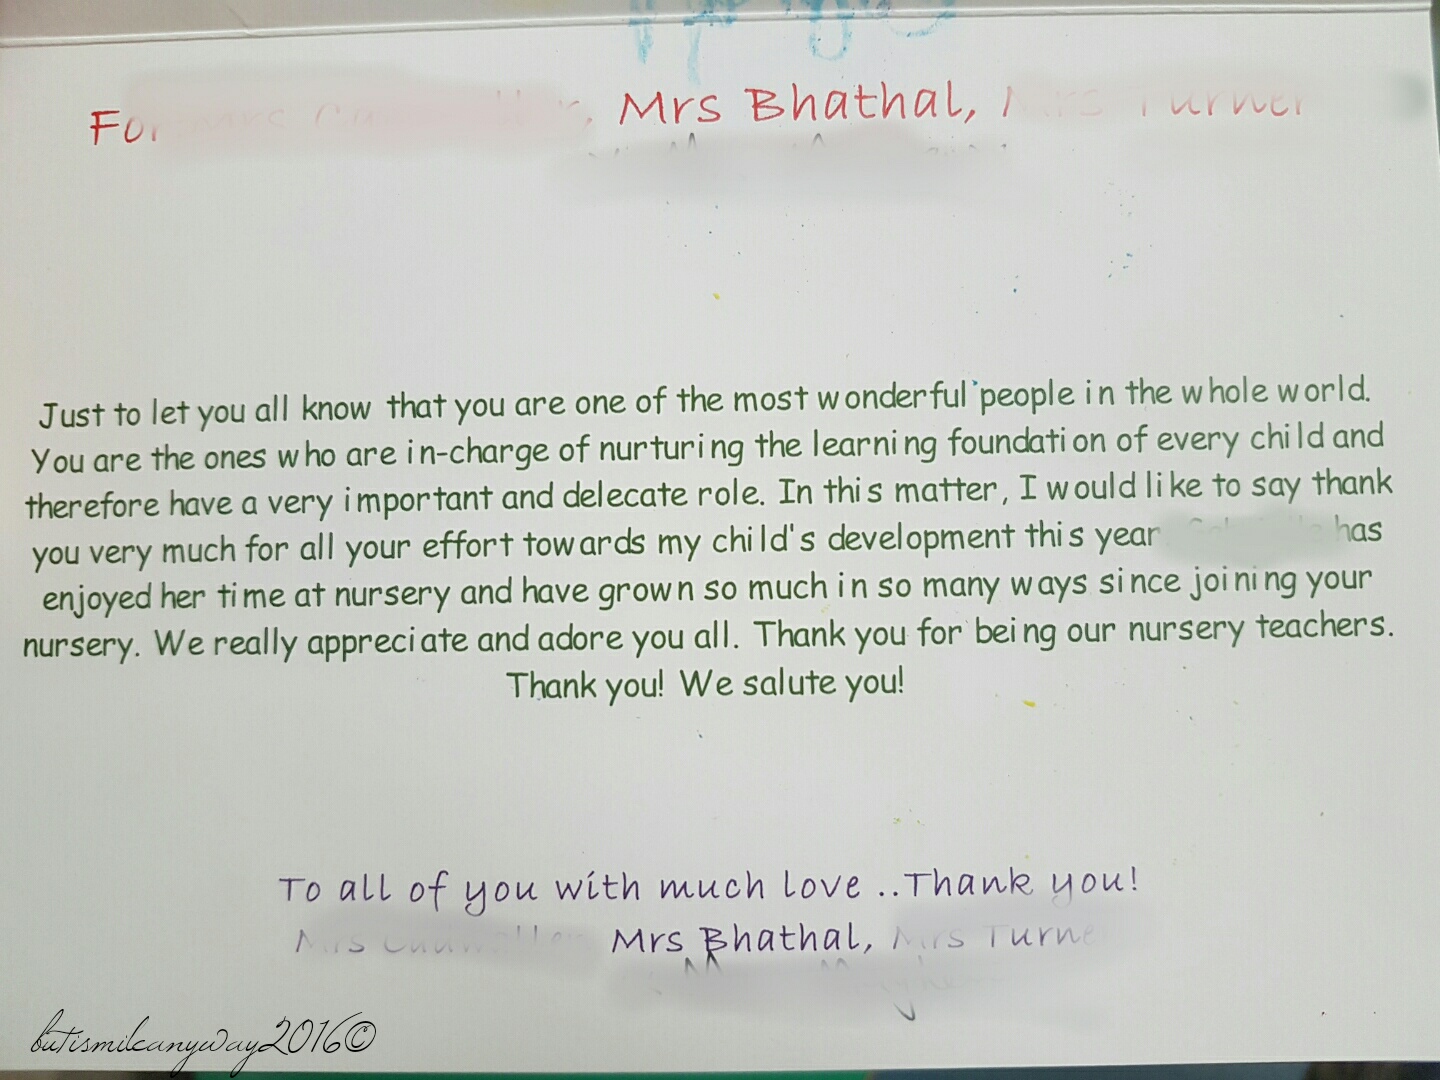 For Mrs Bhathal, Mrs Turner
Just to let you all know that you are one of the most wonderful people in the whole world.
You are the ones who are in-charge of nurturing the learning foundation of every child and
therefore have a very important and delecate role. In this matter, I would like to say thank
you very much for all your effort towards my child's development this year has
enjoyed her time at nursery and have grown so much in so many ways since joining your
nursery. We really appreciate and adore you all. Thank you for being our nursery teachers.
Thank you! We salute you!
To all of you with much love ..Thank you!
Mrs Bhathal, Mrs Turner
butismileanyway2016©